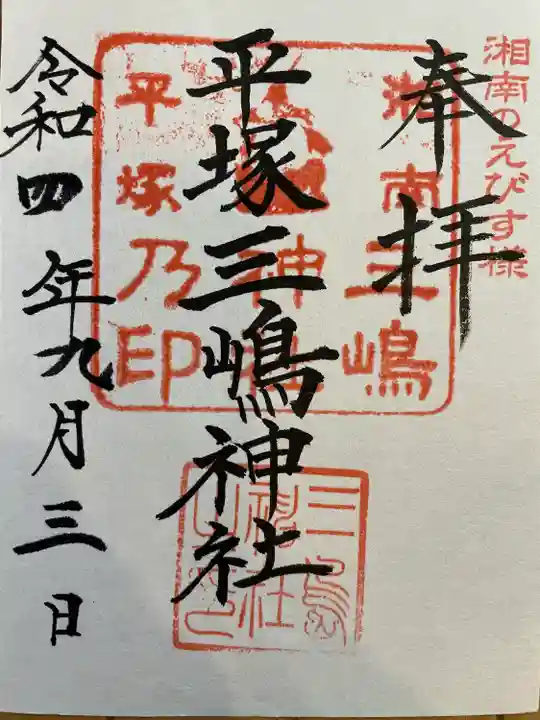 湘南のえびす様
奉拝
平塚三嶋神社
令和四年九月三日
湘南三嶋
神社
平塚乃印
三島
神社